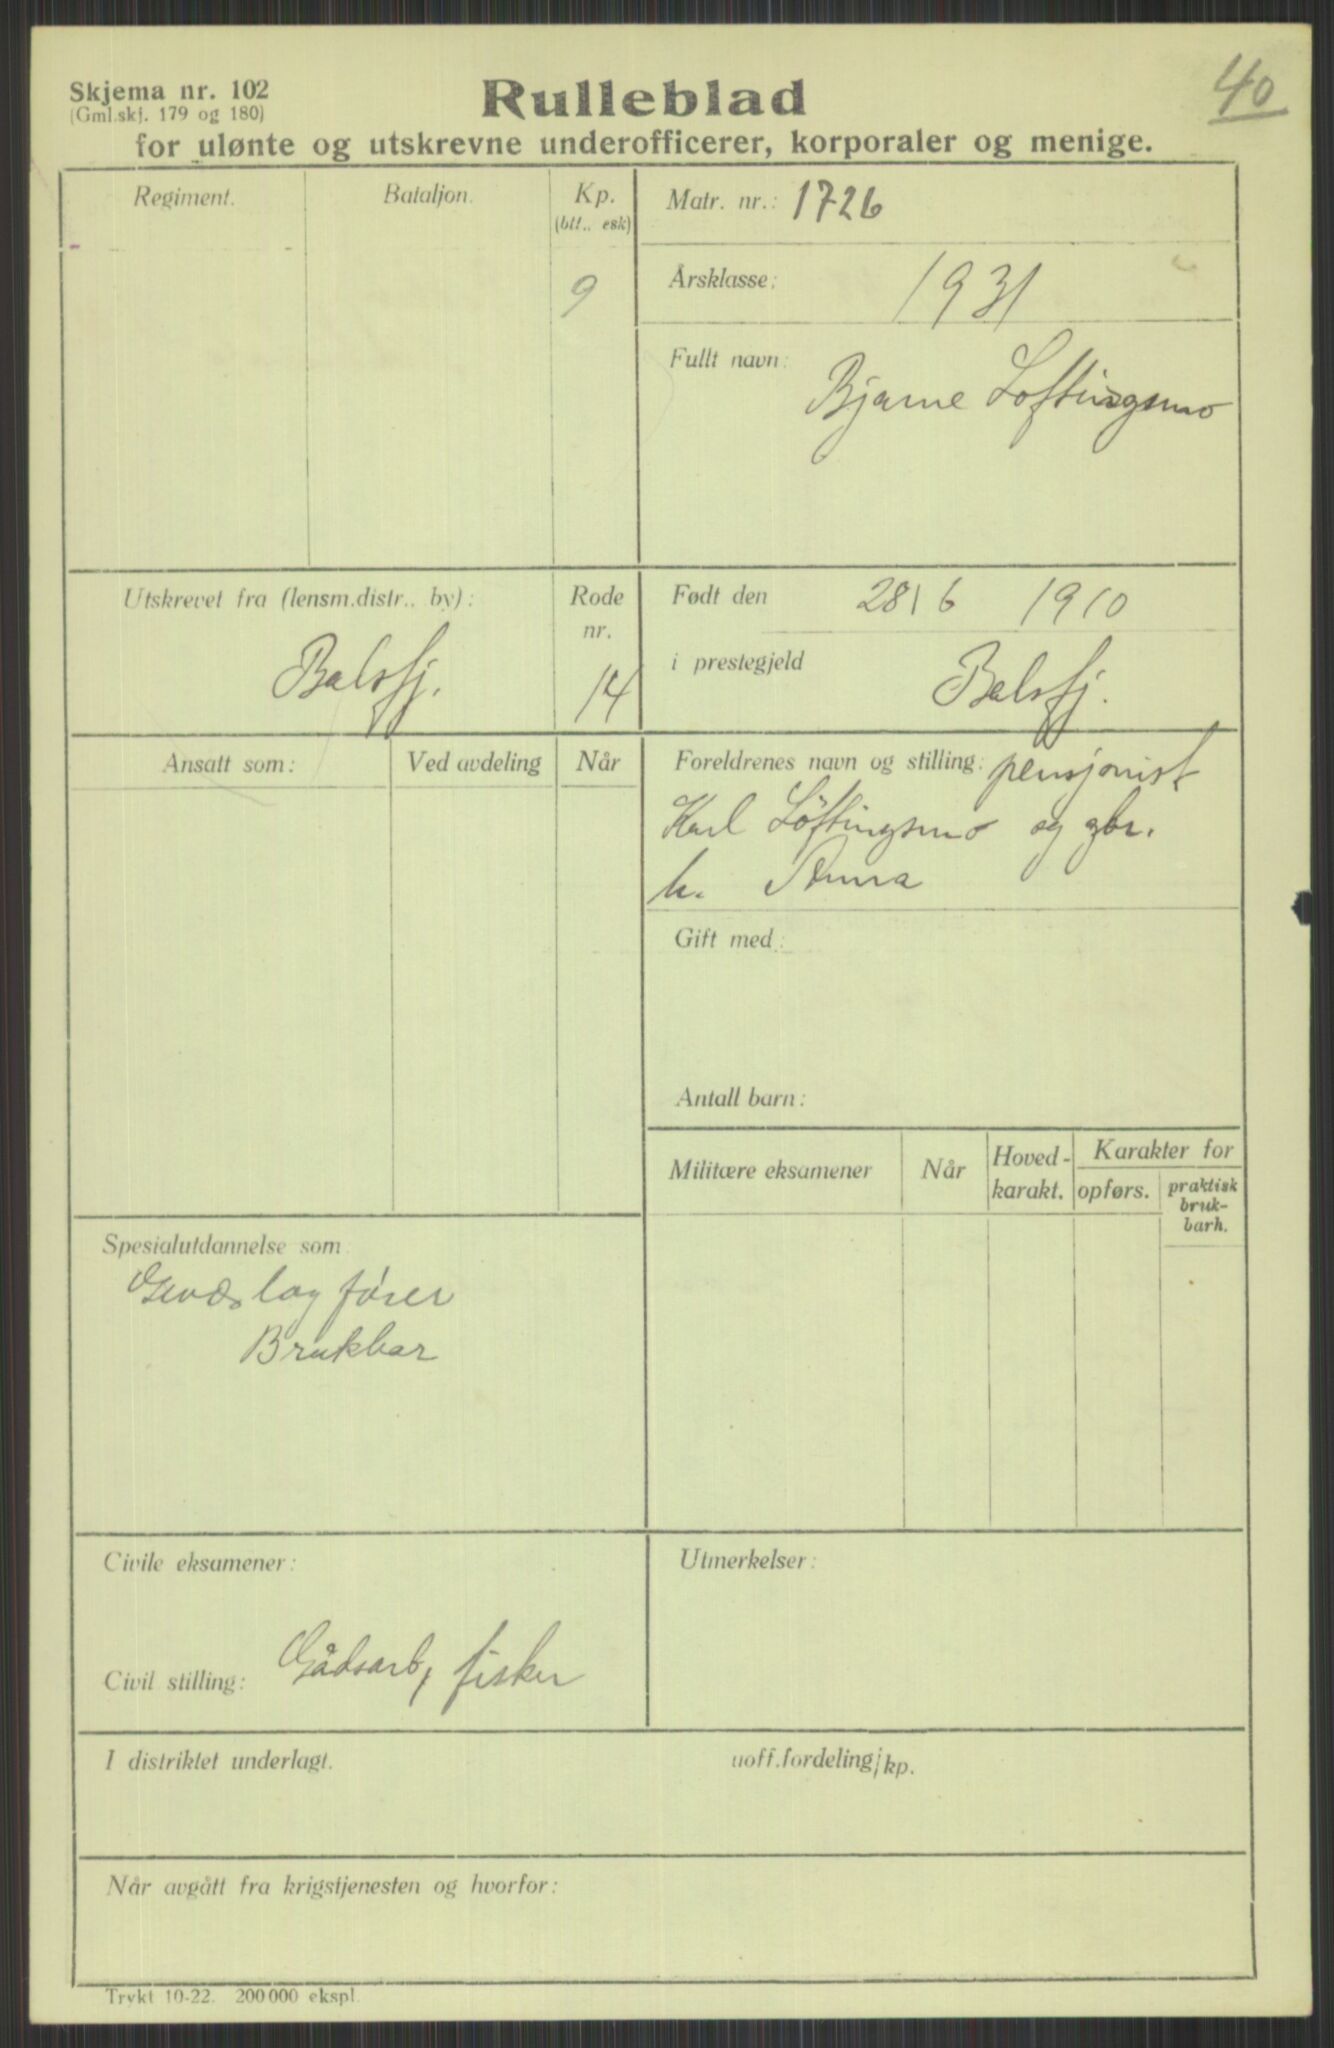 40
Skjema nr. 102
(Gml.skj. 179 og 180)
Rulleblad
for ulønte og utskrevne underofficerer, korporaler og menige.
Regiment.
Bataljon.
Kp.
(btt., esk)
9
Matr. nr.: 1726
Årsklasse: 1931
Fullt navn:
Bjarne Loftingsmo
Utskrevet fra (lensm.distr., by):
Balsfj.
Rode
nr.
14
Født den 28/6 1910
i prestegjeld Balsfj.
Ansatt som:
Ved avdeling
Når
Foreldrenes navn og stilling: pensjonist
Karl Löftingsmo og gbr.
h. Anna
Gift med:
Antall barn:
Militære eksamener
Når
Hoved-
karakt.
Karakter for
opførs.
praktisk
bruk-
barh.
Spesialutdannelse som
lag fører
Brukbar
Civile eksamener:
Civil stilling: Gådsarb, fisker
Utmerkelser:
I distriktet underlagt.
uoff.fordeling/kp.
Når avgått fra krigstjenesten og hvorfor:
Trykt 10-22. 200 000 ekspl.